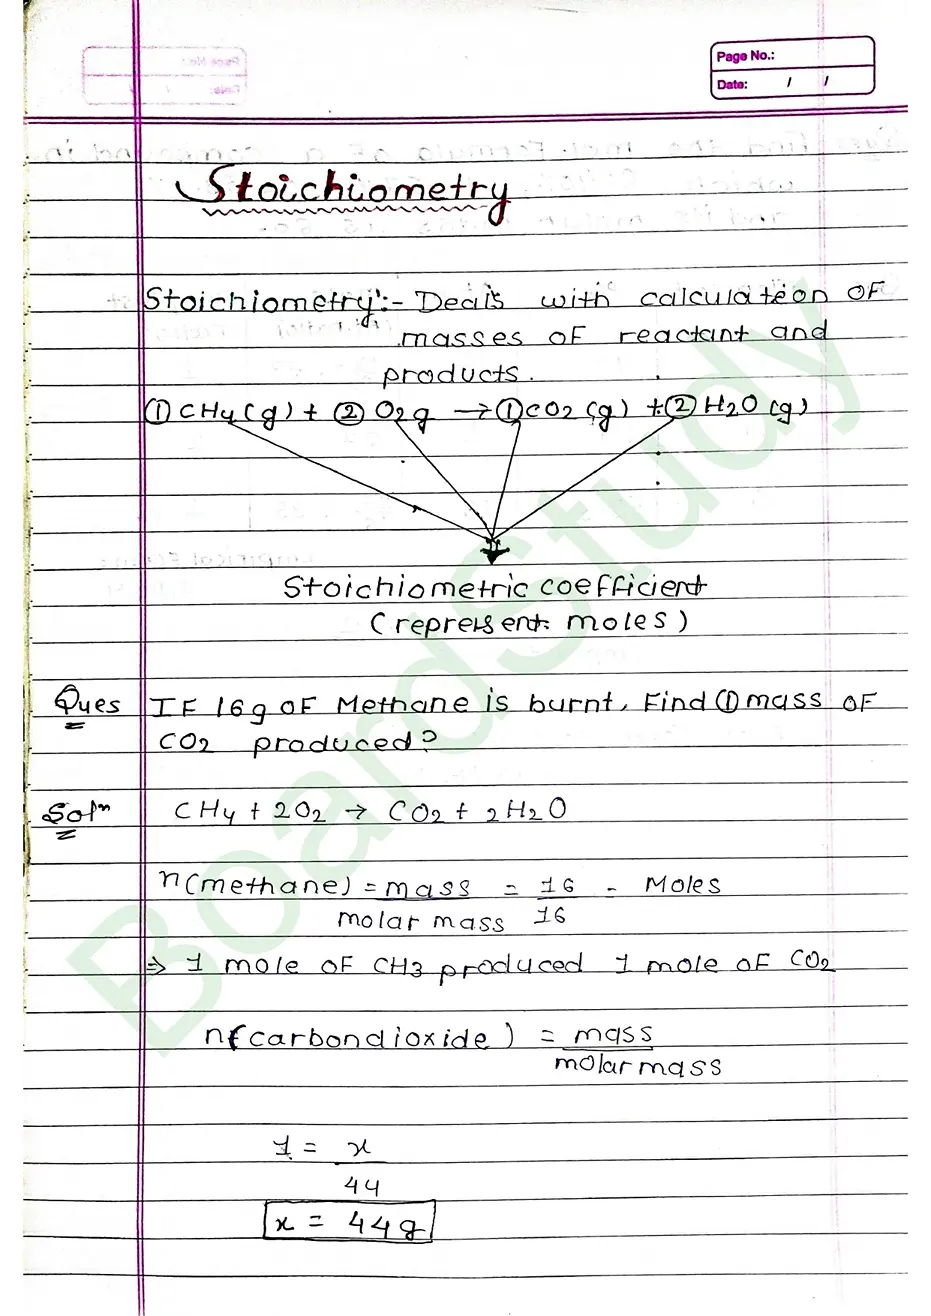 Page No.:
Date: / /
Stoichiometry
Stoichiometry :- Deals with calculation OF
masses OF reactant and
products.
① CH4(g) + ② O2g → ① CO2 (g) + ② H2O (g)
Stoichiometric coefficient
(represent moles)
Ques IF 16g OF Methane is burnt, Find ① mass OF
CO2 produced?
Solⁿ CH4 + 2O2 → CO2 + 2H2O
n(methane) = mass = 16 - Moles
molar mass 16
⇒ 1 mole OF CH3 produced 1 mole OF CO2
n(carbondioxide) = mass
molar mass
1 = x
44
x = 44g
BoardStudy